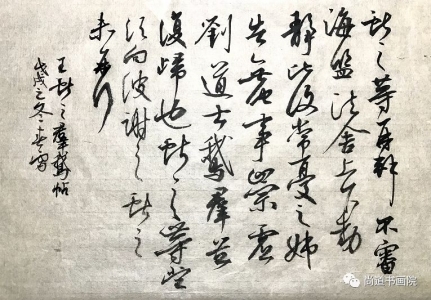 獻之等再拜 不審
海鹽諸舍上下動
靜比復常憂之姊
告無它事崇虛
劉道士鵝羣並
復歸也獻之等當
須向彼謝之獻之
等再拜
王獻之羣鵝帖
戊戌之冬
尚道书画院